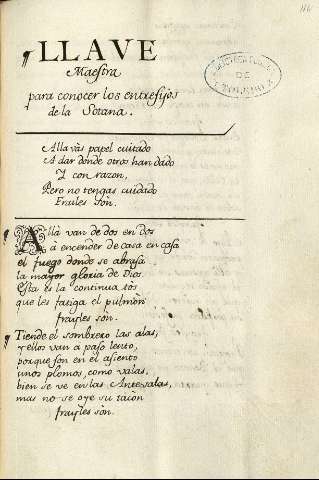 ¶ LLAVE
Maestra
para conocer los entresijos
de la Sotana.
Alla vàs papel cuitado
A dar donde otros han dado
Y con razon,
Pero no tengas cuidado
Frailes son.
¶ Allà van de dos en dos
à encender de casa en casa
el fuego donde se abrasa
la mayor gloria de Dios
Esta es la continua tòs
que les fatiga el pulmòn
frayles sòn.
¶ Tiende el sombrero las alas,
y ellos van a paso lento,
porque son en el asiento
unos plomos, como valas,
bien se ve en las Antesalas,
mas no se oye su tacòn
frayles sòn.
DE